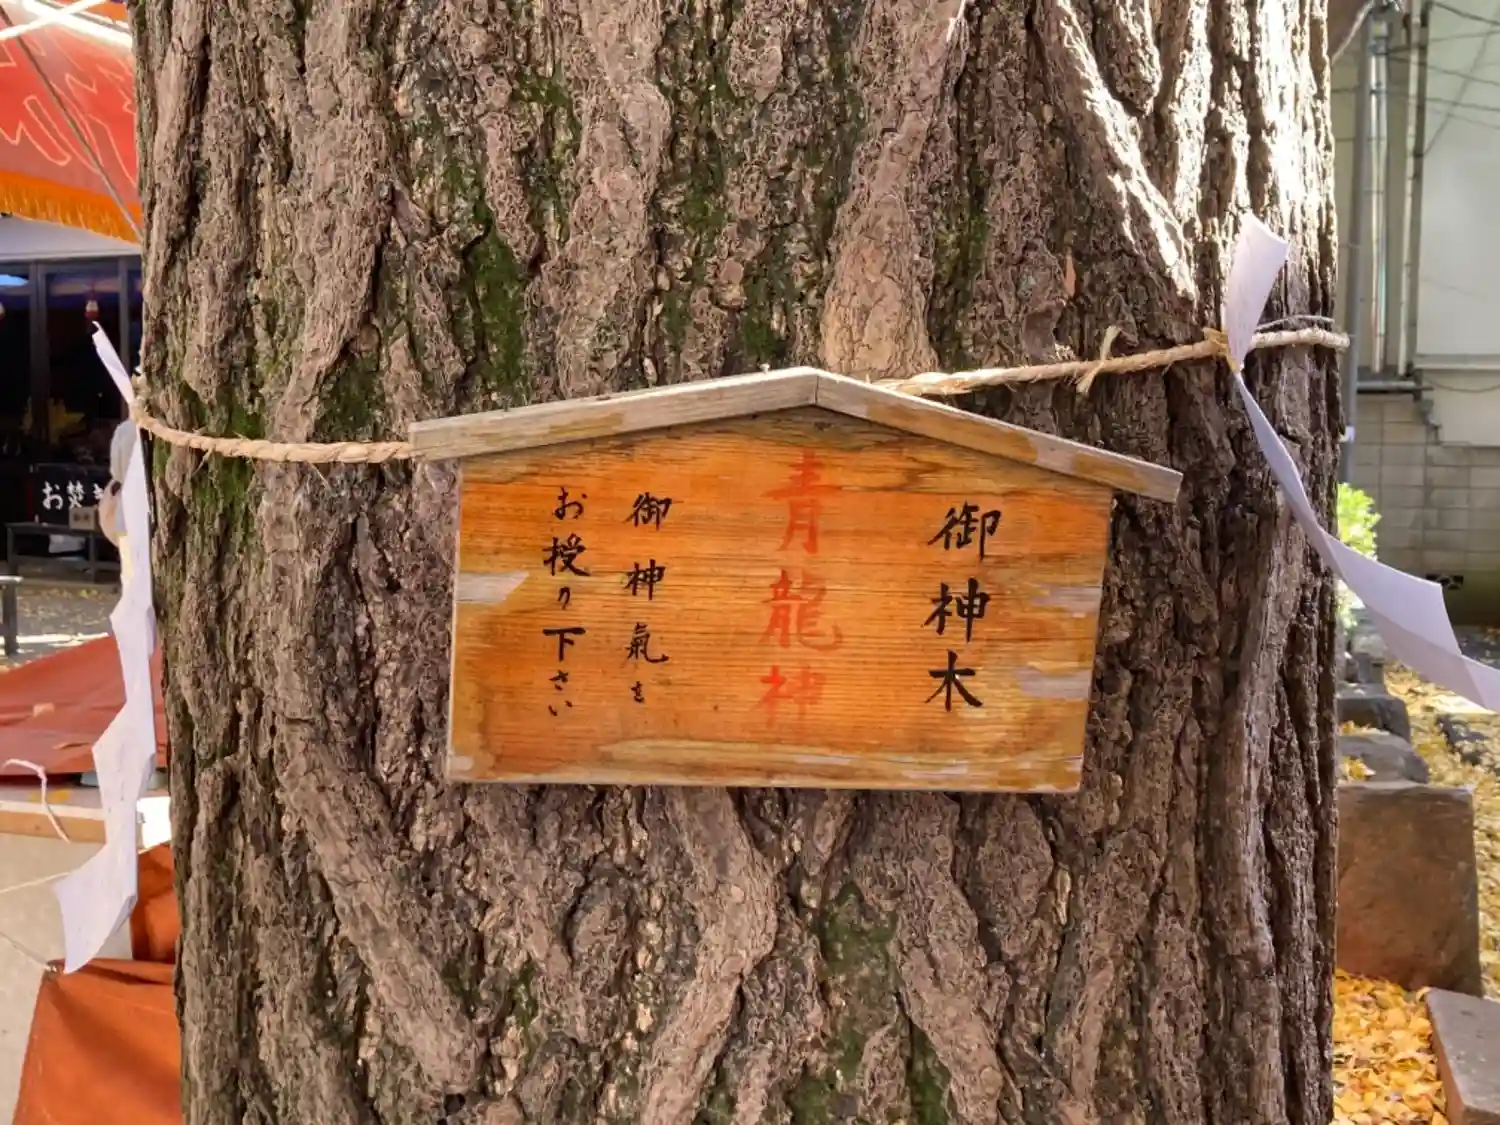 御神木
青龍神
御神氣を
お授り下さい
お焚き